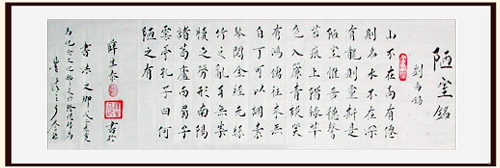 陋室銘
劉禹錫
山不在高有僊
則名水不在深
有龍則靈斯是
陋室惟吾德馨
苔痕上階綠草
色入簾青談笑
有鴻儒往來無
白丁可以調素
琴閱金經無絲
竹之亂耳無案
牘之勞形南陽
諸葛廬西蜀子
雲亭孔子曰何
陋之有
書於